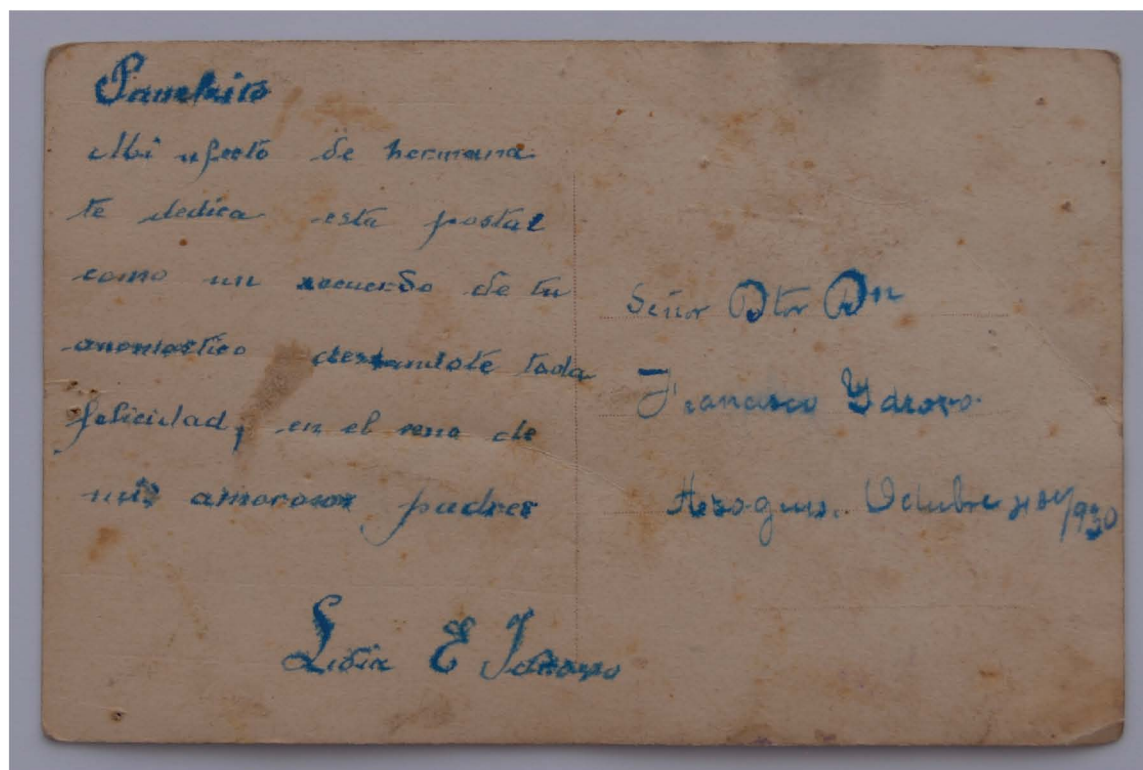 Panchito
Mi afecto de hermana
te dedica esta postal
como un recuerdo de tu
onomastico deseandote toda
felicidad, en el seno de
mis amorosos padres
Lidia E Idrovo
Señor Dtor Dn
Francisco Ydrovo.
Azogues. Octubre /930